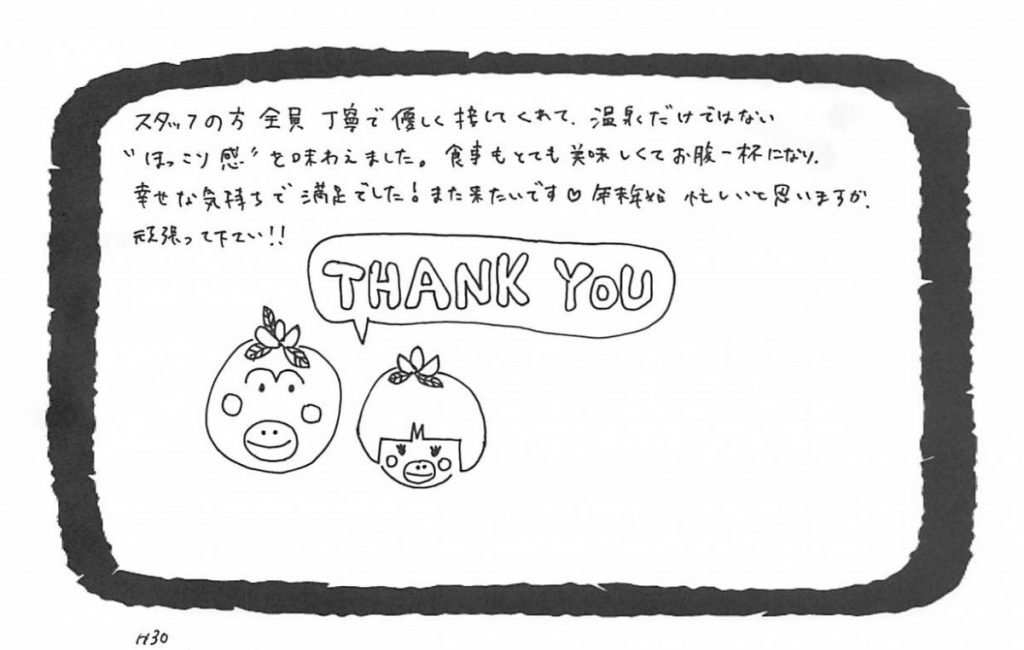 スタッフの方 全員 丁寧で優しく接してくれて、温泉だけではない
"ほっこり感"を味わえました。食事もとても美味しくてお腹一杯になり、
幸せな気持ちで満足でした!また来たいです♡年末年始 忙しいと思いますが、
頑張って下さい!!
THANK YOU
H30